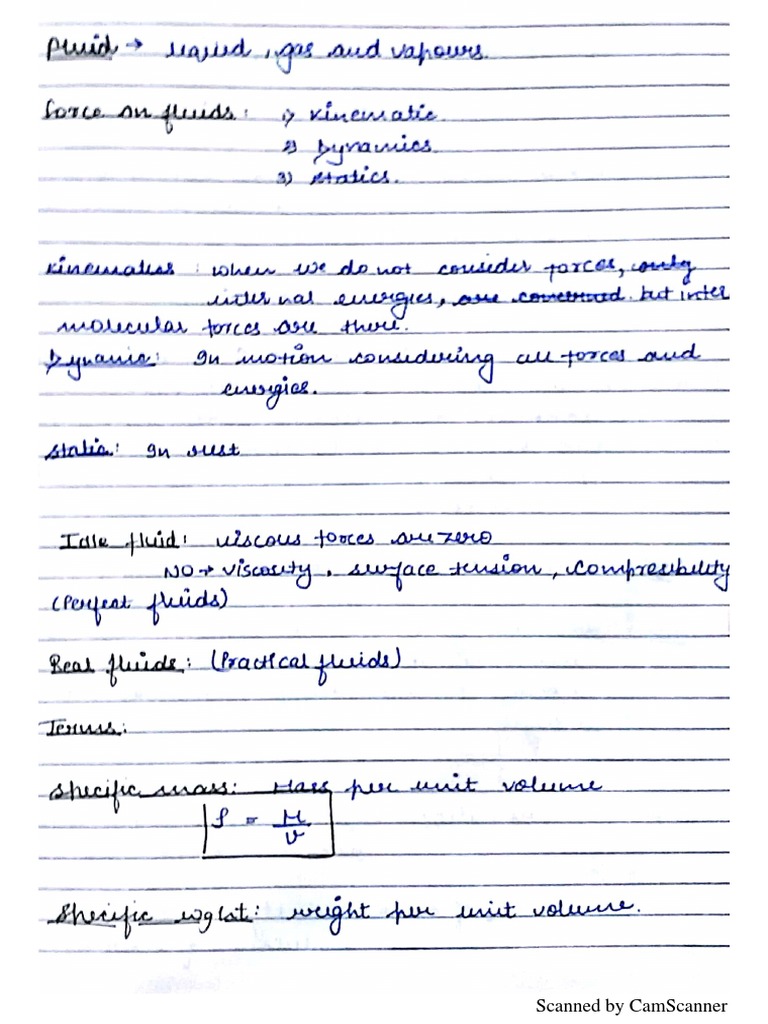 Fluid → liquid, gas and vapours.
Force on fluids: 1) Kinematic.
2) Dynamics.
3) Statics.
Kinematics: when we do not consider forces, only
internal energies, are concerned. but inter
molecular forces are there.
Dynamic: In motion considering all forces and
energies.
Static: In rest
Idle fluid: viscous forces are zero
NO → viscosity, surface tension, compressibility
(Perfect fluids)
Real fluids: (Practical fluids)
Terms:
Specific mass: Mass per unit volume
ρ = M/V
Specific wght: weight per unit volume.
Scanned by CamScanner